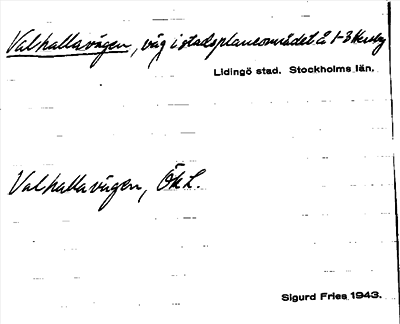 Valhallavägen, väg i stadsplaneområdet å 1-3 Hersby
Lidingö stad. Stockholms län.
Valhallavägen, ÖkL.
Sigurd Fries 1943.